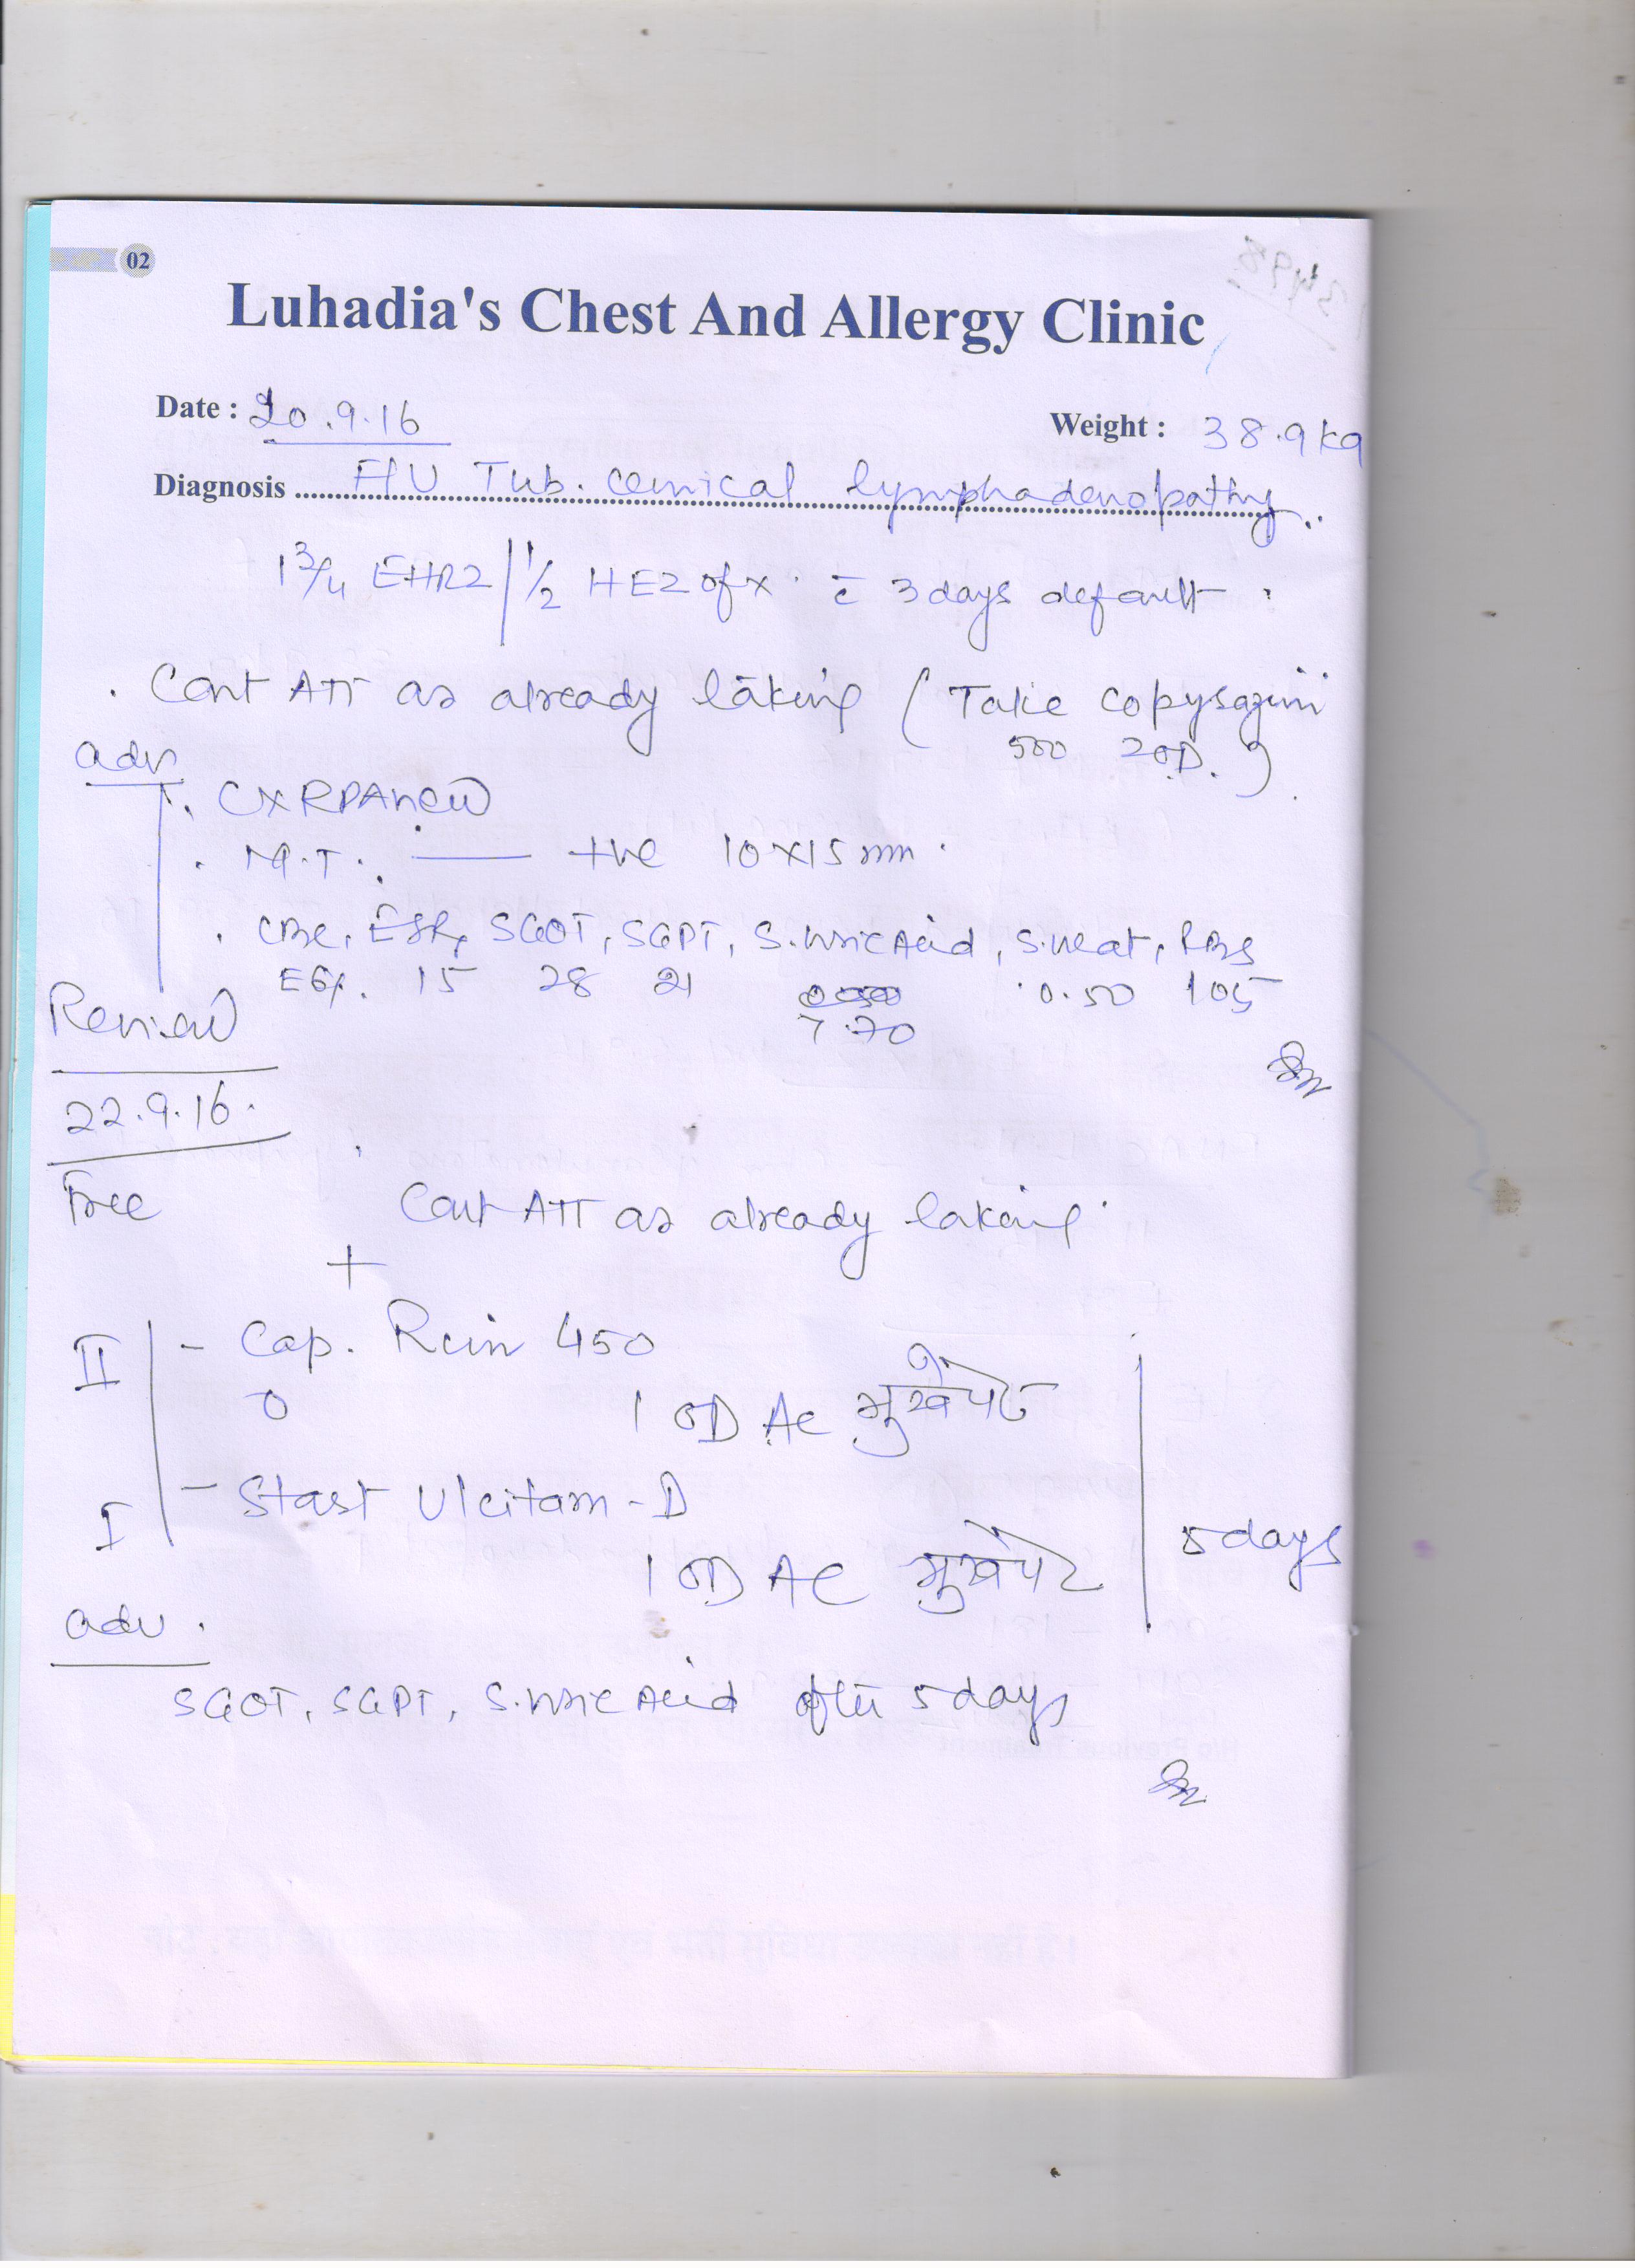 02
Luhadia's Chest And Allergy Clinic
Date : 20.9.16
Weight : 38.9 kg
Diagnosis F/U Tub. cervical lymphadenopathy
1 3/4 EHRZ | 1/2 HEZ ofx c̄ 3 days default.
. Cont ATT as already taking (Take
500 2 OD.)
adv
. CXR PA new
. M.T. — +ve 10x15 mm.
. CBC, ESR, SGOT, SGPT, S. Uric Acid, S. , RBS
15 28 21 0.50 105
7.70
Review
22.9.16.
Free Cont ATT as already taking.
+
II - Cap. Rcin 450
1 OD AC भूखे पेट
I - Start Ulcitam-D
1 OD AC भूखे पेट
5 days
adv.
SGOT, SGPT, S. Uric Acid after 5 days